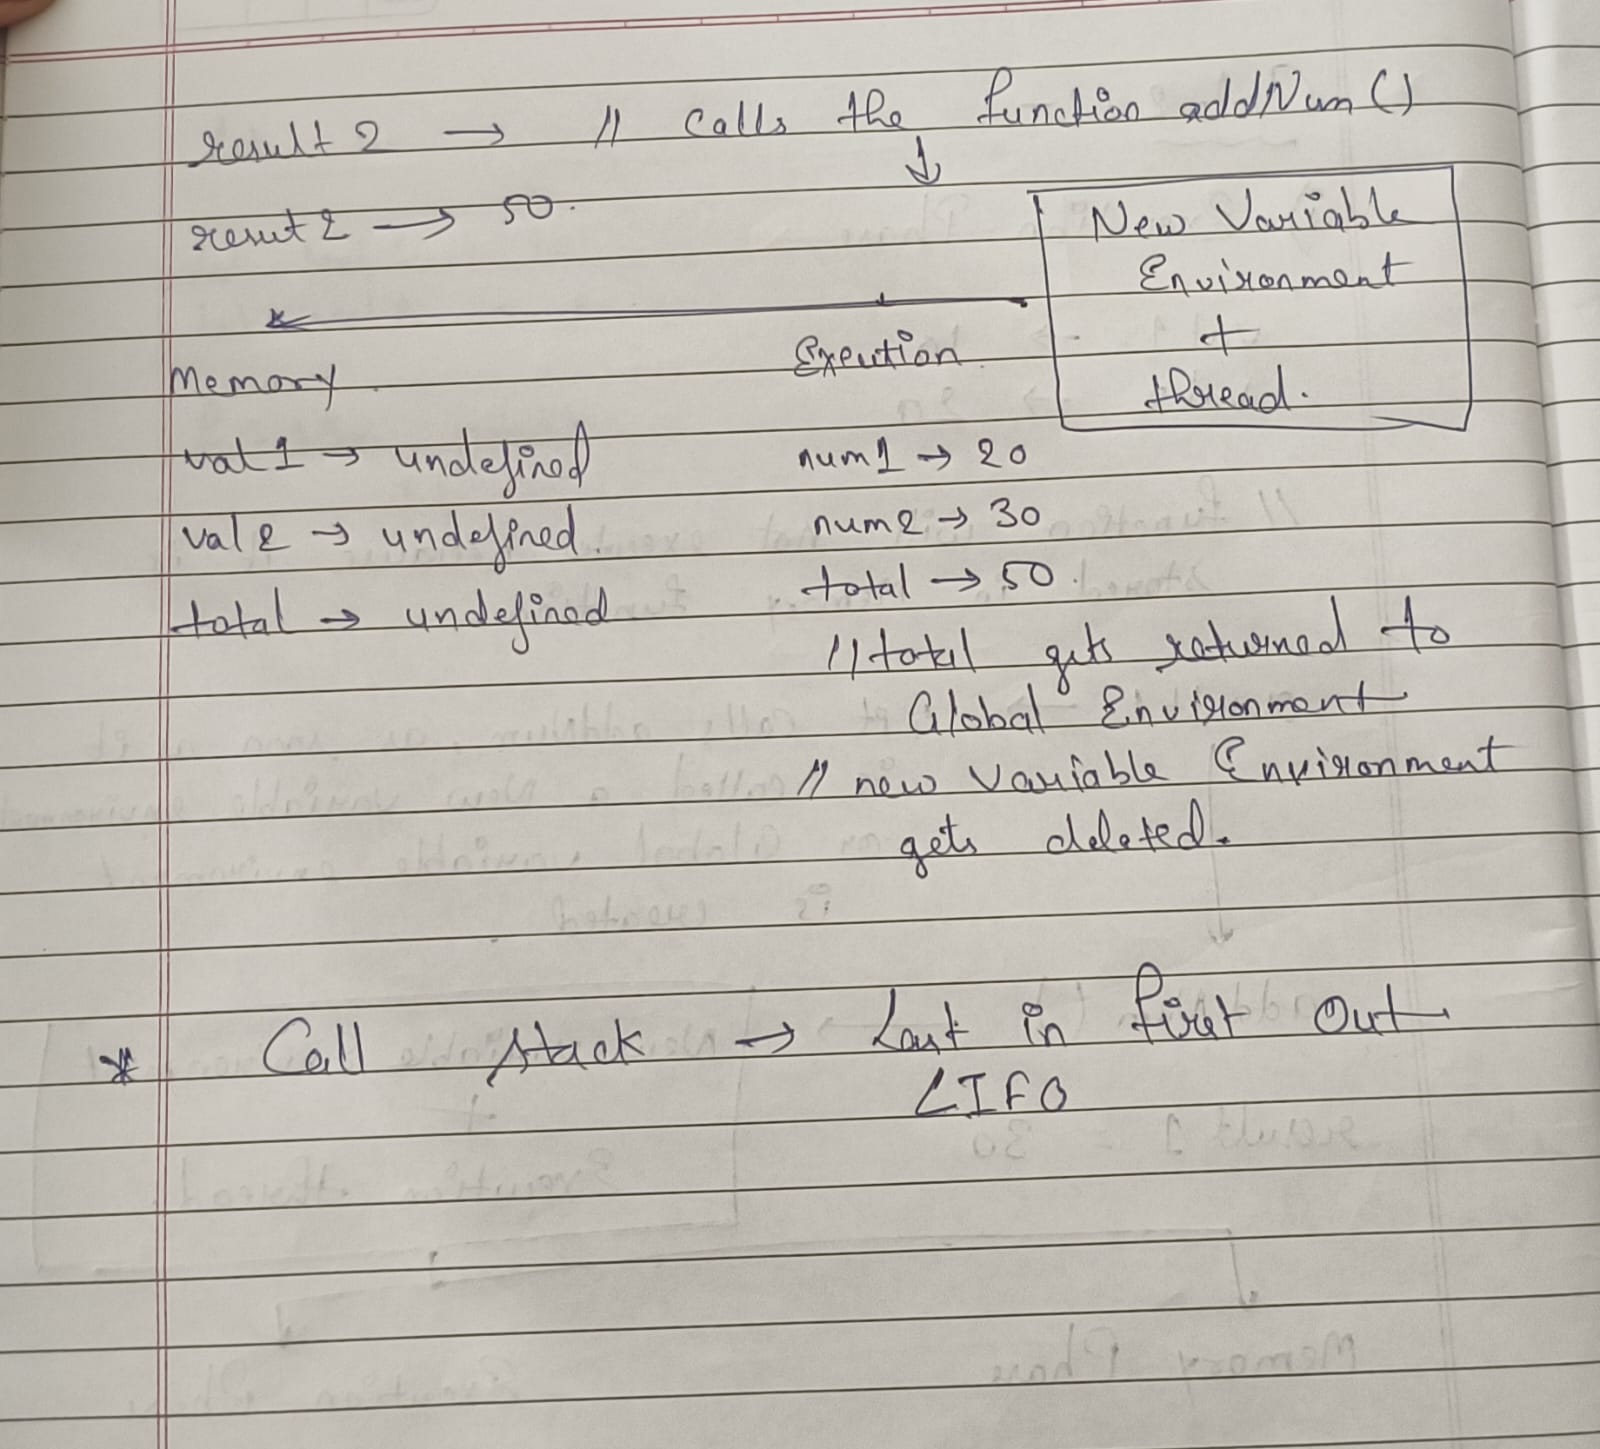 result 2 → // calls the function addNum ()
↓
resut 2 → 50.
New Variable
Environment
+
thread.
Memory
Exeution
val 1 → undefined num1 → 20
val 2 → undefined. num2 → 30
total → undefined total → 50.
// total gets returned to
Global Environment
// new variable Environment
gets deleted.
* Call stack → Last in first out
LIFO